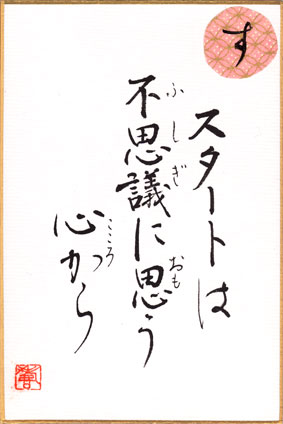 す
スタートは
不思議に思う
ふしぎ
おも
心から
こころ